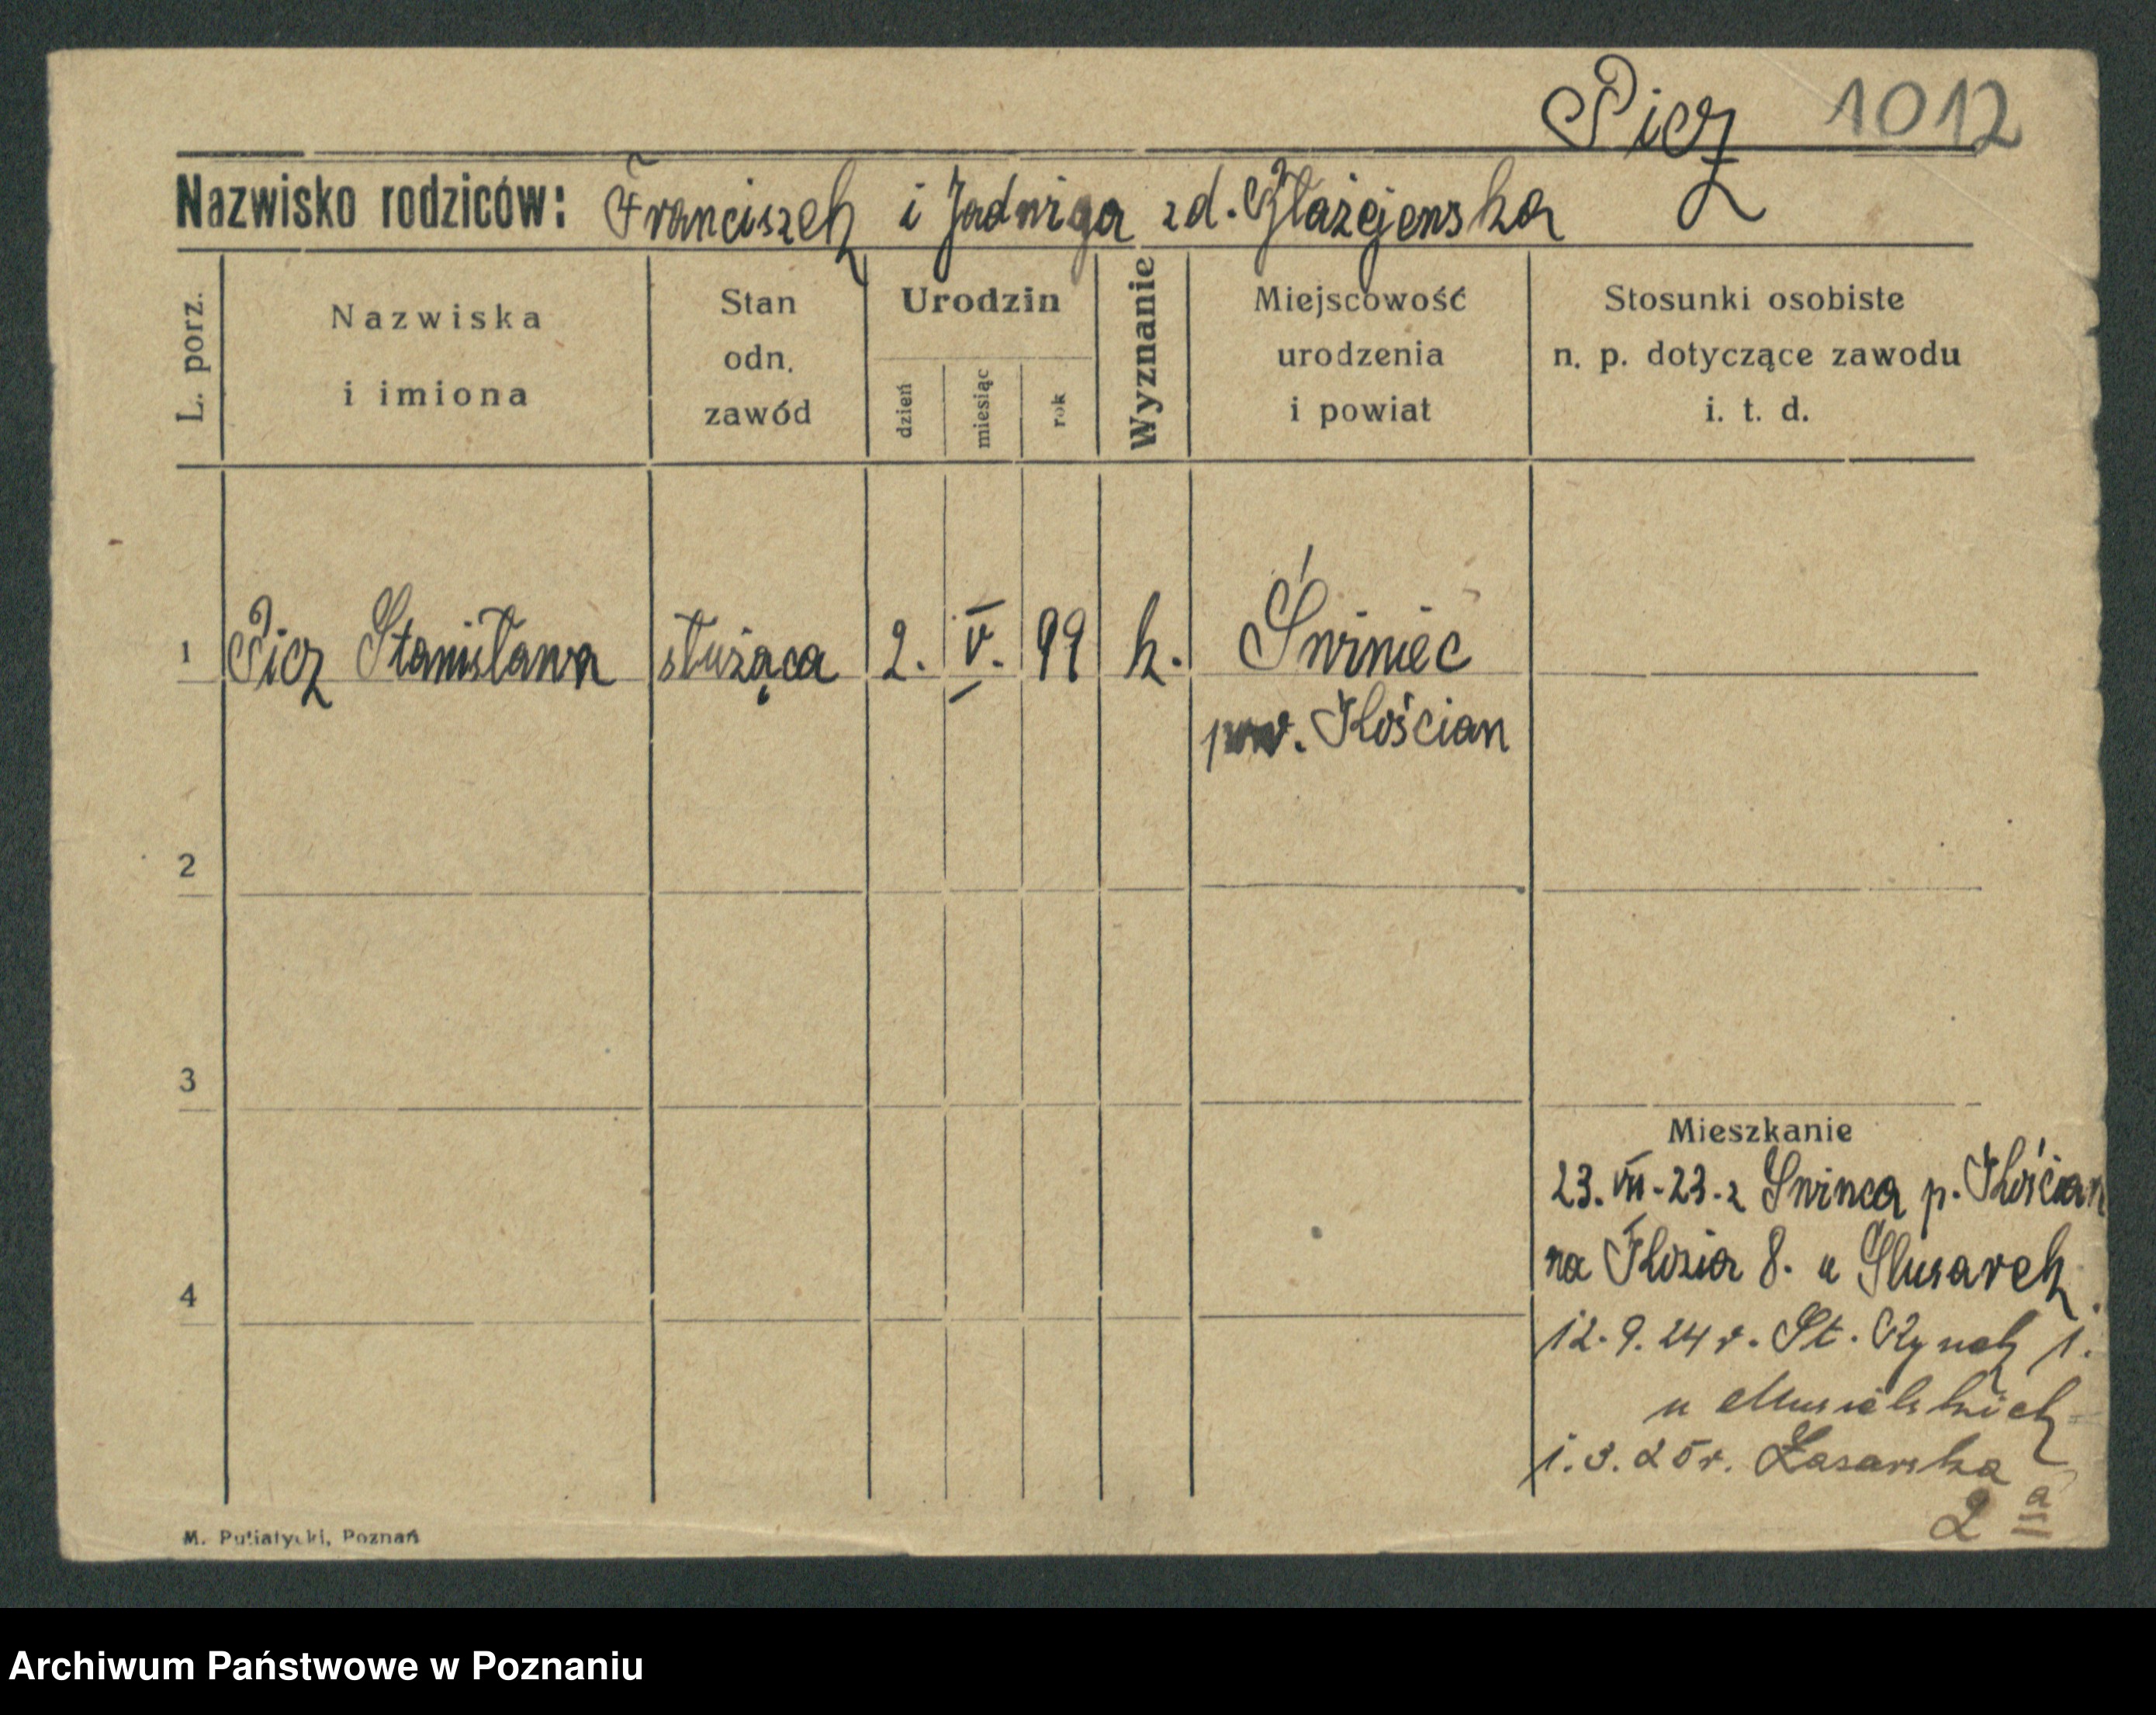 Picz 1012
Nazwisko rodziców: Franciszek i Jadwiga zd. Błażejewska
L. porz.
Nazwiska
i imiona
Stan
odn.
zawód
Urodzin
dzień
miesiąc
rok
Wyznanie
Miejscowość
urodzenia
i powiat
Stosunki osobiste
n. p. dotyczące zawodu
i. t. d.
1 Picz Stanisława służąca 2. V. 99 k. Świniec
pow. Kościan
2
3
Mieszkanie
23. VII. 23. z Swinca p. Kościan
4
na Kozia 8. u Slusarek.
12. 9. 24 r. St. Rynek 1.
u
1. 3. 25 r.
2 a
M. Putiatycki, Poznań
Archiwum Państwowe w Poznaniu